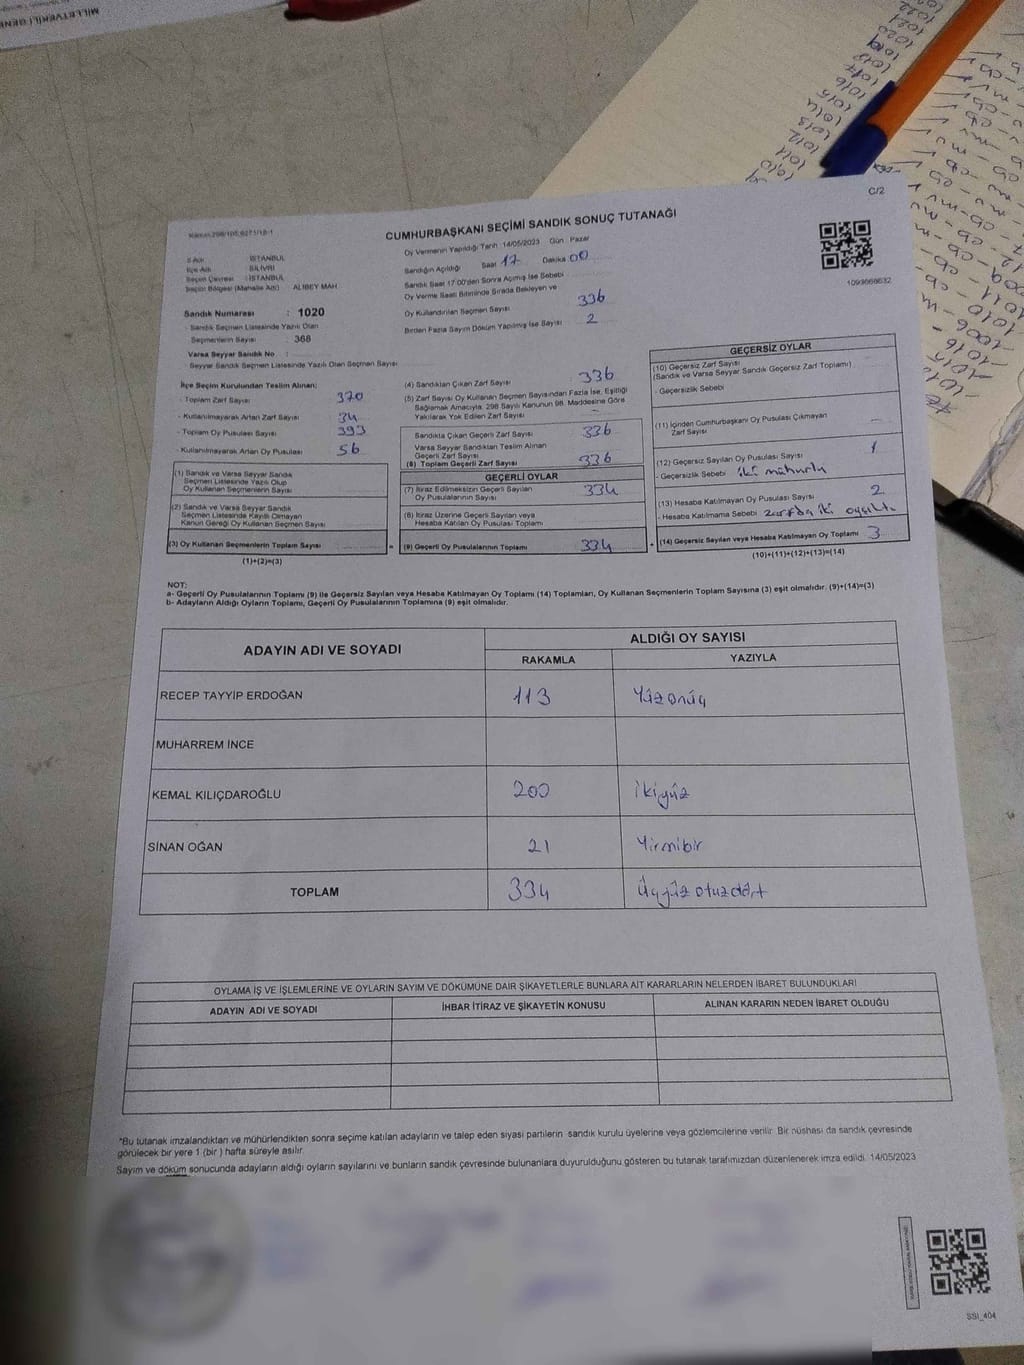 C/2
CUMHURBAŞKANI SEÇİMİ SANDIK SONUÇ TUTANAĞI
Oy Vermenin Yapıldığı Tarih : 14/05/2023 Gün : Pazar
İl Adı : İSTANBUL
İlçe Adı : SİLİVRİ
Seçim Çevresi : İSTANBUL
Seçim Bölgesi (Mahalle Adı) : ALIBEY MAH.
Sandığın Açıldığı Saat 17 Dakika 00
Sandık Saat 17:00'den Sonra Açılmış İse Sebebi
Oy Verme Saati Bitiminde Sırada Bekleyen ve
Oy Kullandırılan Seçmen Sayısı 336
Birden Fazla Sayım Döküm Yapılmış İse Sayısı 2
1093668632
Sandık Numarası : 1020
- Sandık Seçmen Listesinde Yazılı Olan
Seçmenlerin Sayısı : 368
Varsa Seyyar Sandık No :
Seyyar Sandık Seçmen Listesinde Yazılı Olan Seçmen Sayısı
İlçe Seçim Kurulundan Teslim Alınan;
- Toplam Zarf Sayısı 370
- Kullanılmayarak Artan Zarf Sayısı 34
- Toplam Oy Pusulası Sayısı 393
- Kullanılmayarak Artan Oy Pusulası 56
(1) Sandık ve Varsa Seyyar Sandık
Seçmen Listesinde Yazılı Olup
Oy Kullanan Seçmenlerin Sayısı
(2) Sandık ve Varsa Seyyar Sandık
Seçmen Listesinde Kayıtlı Olmayan
Kanun Gereği Oy Kullanan Seçmen Sayısı
(3) Oy Kullanan Seçmenlerin Toplam Sayısı
(1)+(2)=(3)
(4) Sandıktan Çıkan Zarf Sayısı 336
(5) Zarf Sayısı Oy Kullanan Seçmen Sayısından Fazla İse, Eşitliği
Sağlamak Amacıyla, 298 Sayılı Kanunun 98. Maddesine Göre
Yakılarak Yok Edilen Zarf Sayısı -
Sandıkta Çıkan Geçerli Zarf Sayısı 336
Varsa Seyyar Sandıktan Teslim Alınan
Geçerli Zarf Sayısı
(6) Toplam Geçerli Zarf Sayısı 336
GEÇERLİ OYLAR
(7) İtiraz Edilmeksizin Geçerli Sayılan
Oy Pusulalarının Sayısı 334
(8) İtiraz Üzerine Geçerli Sayılan veya
Hesaba Katılan Oy Pusulası Toplamı
(9) Geçerli Oy Pusulalarının Toplamı 334
GEÇERSİZ OYLAR
(10) Geçersiz Zarf Sayısı
(Sandık ve Varsa Seyyar Sandık Geçersiz Zarf Toplamı)
- Geçersizlik Sebebi
(11) İçinden Cumhurbaşkanı Oy Pusulası Çıkmayan
Zarf Sayısı
(12) Geçersiz Sayılan Oy Pusulası Sayısı 1
- Geçersizlik Sebebi iki mühürlü
(13) Hesaba Katılmayan Oy Pusulası Sayısı 2
- Hesaba Katılmama Sebebi zarfda iki
(14) Geçersiz Sayılan veya Hesaba Katılmayan Oy Toplamı 3
(10)+(11)+(12)+(13)=(14)
NOT:
a- Geçerli Oy Pusulalarının Toplamı (9) ile Geçersiz Sayılan veya Hesaba Katılmayan Oy Toplamı (14) Toplamları, Oy Kullanan Seçmenlerin Toplam Sayısına (3) eşit olmalıdır. (9)+(14)=(3)
b- Adayların Aldığı Oyların Toplamı, Geçerli Oy Pusulalarının Toplamına (9) eşit olmalıdır.
ADAYIN ADI VE SOYADI ALDIĞI OY SAYISI
RAKAMLA YAZIYLA
RECEP TAYYİP ERDOĞAN 113 Yüzonüç
MUHARREM İNCE
KEMAL KILIÇDAROĞLU 200 İkiyüz
SİNAN OĞAN 21 Yirmibir
TOPLAM 334 Üçyüz otuzdört
OYLAMA İŞ VE İŞLEMLERİNE VE OYLARIN SAYIM VE DÖKÜMÜNE DAİR ŞİKAYETLERLE BUNLARA AİT KARARLARIN NELERDEN İBARET BULUNDUKLARI
ADAYIN ADI VE SOYADI İHBAR İTİRAZ VE ŞİKAYETİN KONUSU ALINAN KARARIN NEDEN İBARET OLDUĞU
*Bu tutanak imzalandıktan ve mühürlendikten sonra seçime katılan adayların ve talep eden siyasi partilerin sandık kurulu üyelerine veya gözlemcilerine verilir. Bir nüshası da sandık çevresinde
görülecek bir yere 1 (bir) hafta süreyle asılır.
Sayım ve döküm sonucunda adayların aldığı oyların sayılarını ve bunların sandık çevresinde bulunanlara duyurulduğunu gösteren bu tutanak tarafımızdan düzenlenerek imza edildi. 14/05/2023
SSI_404